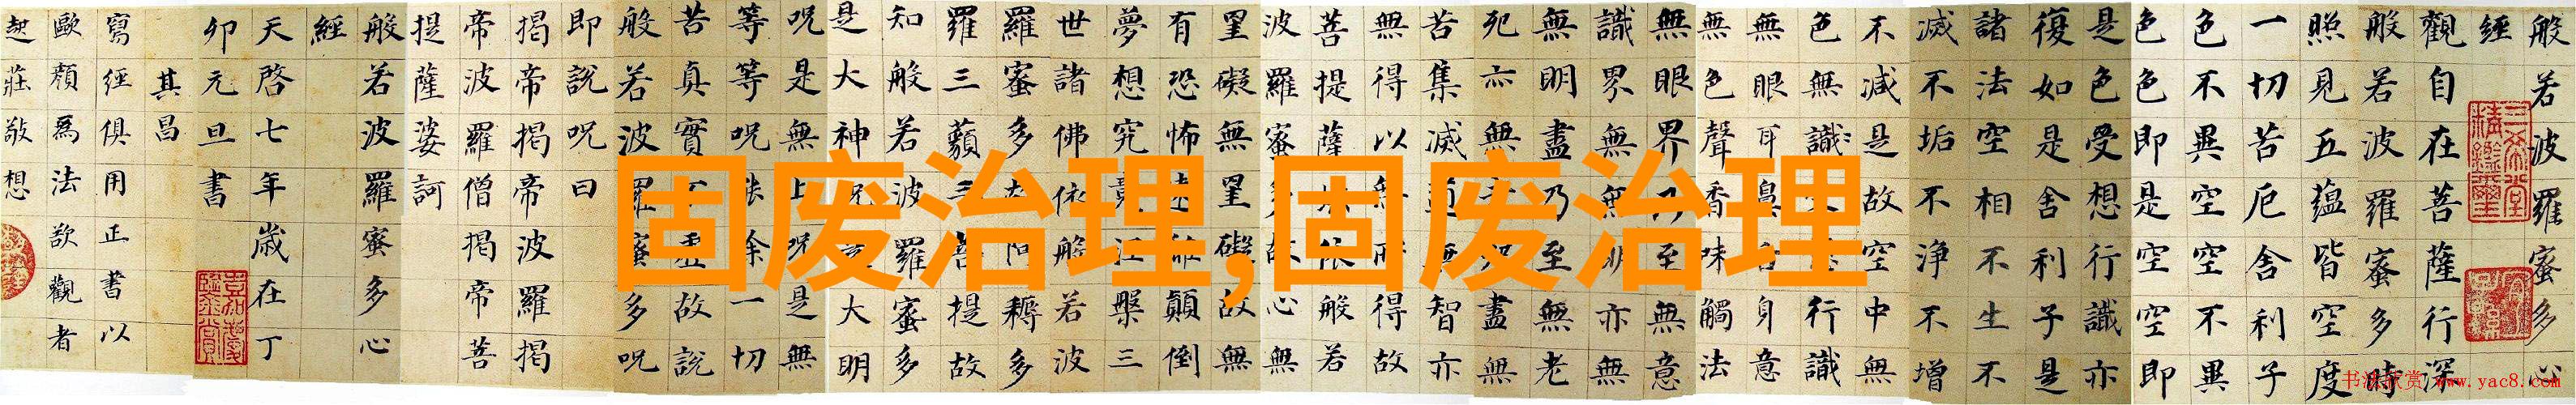 般若波羅蜜多心
經
觀自在菩薩行深
般若波羅蜜多時
照見五蘊皆空度
一切苦厄舍利子
色不異空空不異
色色即是空空即
是色受想行識亦
復如是舍利子是
諸法空相不生不
滅不垢不淨不增
不減是故空中無
色無識行識
無眼耳鼻舌身意
無色聲香味觸法
無眼界乃至無意
識界無無明亦無
無明盡乃至無老
死亦無老死盡無
苦集滅道無智亦
無得以無所得故
菩提薩埵依般若
波羅蜜多故心無
罣礙無罣礙故無
有恐怖遠離顛倒
夢想究竟涅槃三
世諸佛依般若波
羅蜜多故阿耨多
羅三藐三菩提故
知般若波羅蜜多
是大神呪是大明
呪是無上呪是無
等等呪能除一切
苦真實不虛故說
般若波羅蜜多呪
即說呪曰
揭帝揭帝波羅揭
帝波羅僧揭帝菩
提薩婆訶
般若波羅蜜多心
經
天啓七年歲在丁
卯元旦書
其昌
寫經俱用正書以
歐顏爲法欲觀者
起莊敬想
固废治理,固废治理
书法欣赏 www.yac8.com